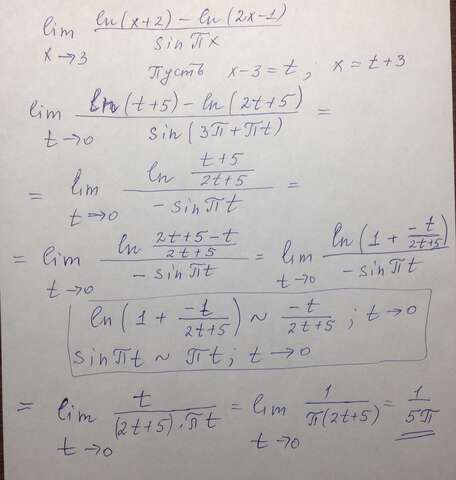 lim x→3 (ln(x+2) - ln(2x-1)) / (sin πx)
Пусть x-3 = t ; x = t+3
lim t→0 (ln(t+5) - ln(2t+5)) / (sin(3π+πt)) =
= lim t→0 (ln (t+5)/(2t+5)) / (-sin πt) =
= lim t→0 (ln (2t+5-t)/(2t+5)) / (-sin πt) = lim t→0 (ln(1 + (-t)/(2t+5))) / (-sin πt)
ln(1 + (-t)/(2t+5)) ~ (-t)/(2t+5) ; t→0
sin πt ~ πt ; t→0
= lim t→0 t/((2t+5)·πt) = lim t→0 1/(π(2t+5)) = 1/(5π)